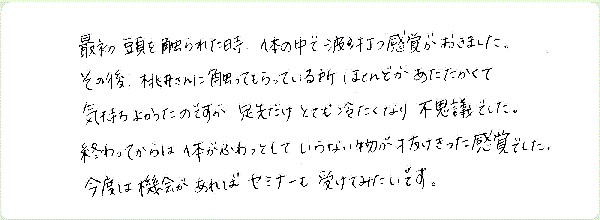 最初 頭を触られた時、体の中で波打つ感覚がおきました。
その後、桃井さんに触ってもらっている所 ほとんどが あたたかくて
気持ちよかったのですが 足先だけ とても冷たくなり 不思議でした。
終わってからは 体がふわっとして いらない物が抜けきった感覚でした。
今度は機会があれば セミナーも 受けてみたいです。